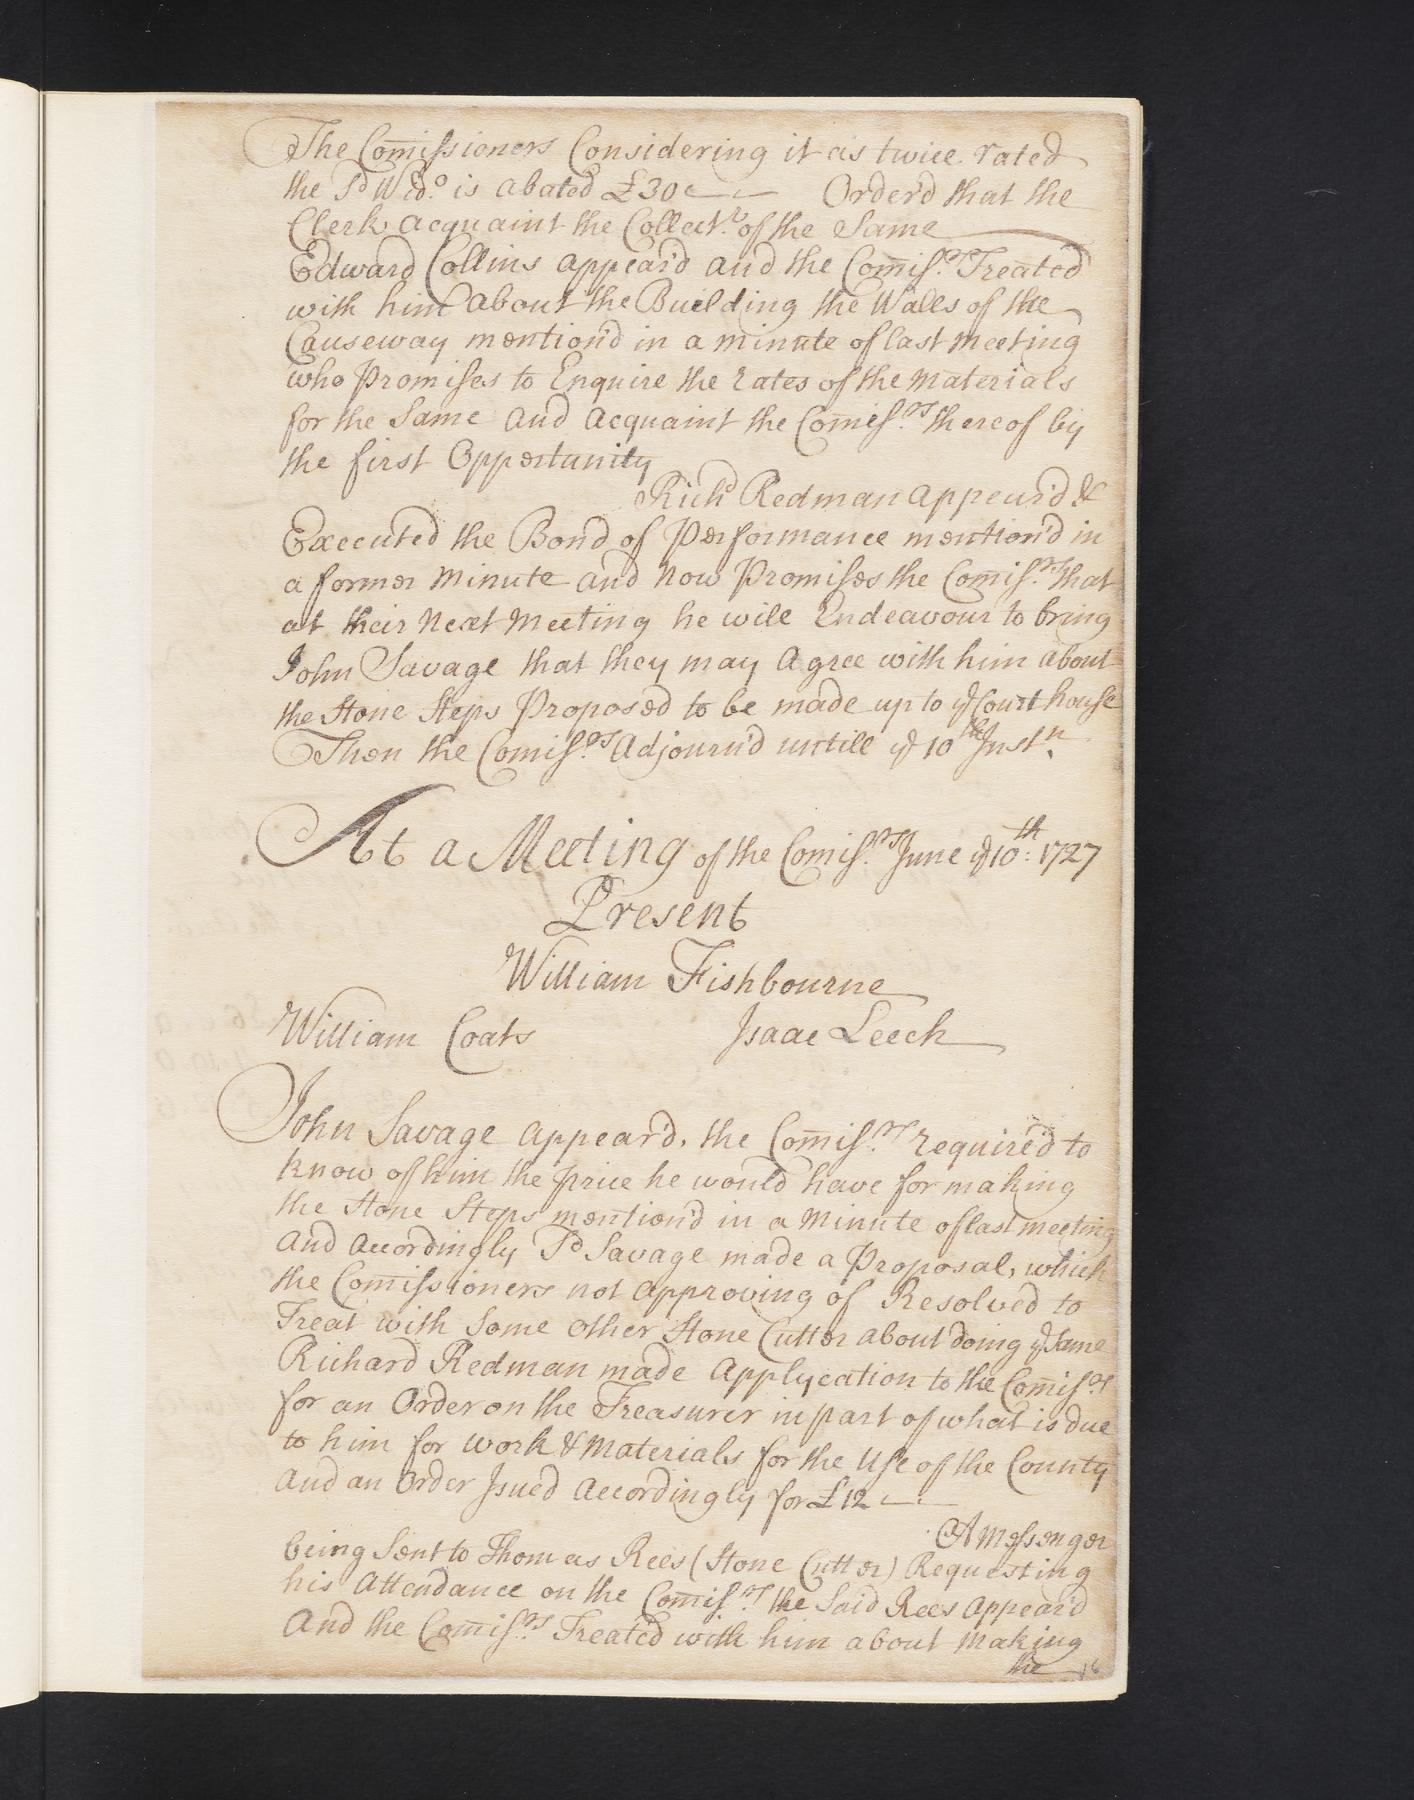 The Comissioners Considering it as twice rated
the Sd Wido. is abated £30 — — Order'd that the
Clerk acquaint the Collectr. of the Same
Edward Collins appear'd and the Comisrs. Treated
with him about the Building the Walls of the
Causeway mention'd in a minute of last meeting
who Promises to Enquire the rates of the materials
for the Same and acquaint the Comisrs. thereof by
the first Oppertunity
Richd Redman appear'd &
Executed the Bond of Performance mention'd in
a former minute and now Promises the Comisrs. that
at their next meeting he will Endeavour to bring
John Savage that they may Agree with him about
the Stone Steps Proposed to be made up to ye Court house
Then the Comisrs. Adjourn'd untill ye 10th Instn.
At a Meeting of the Comisrs. June ye 10th: 1727
Present
William Fishbourne
William Coats Isaac Leech
John Savage appear'd, the Comisrs. requir'd to
know of him the price he would have for making
the Stone Steps mention'd in a minute of last meeting
and accordingly Sd Savage made a Proposal, which
the Comissioners not approving of Resolved to
Treat with Some other Stone Cutter about doing ye Same
Richard Redman made Applycation to the Comisrs
for an Order on the Treasurer in part of what is due
to him for work & materials for the Use of the County
and an Order Isued accordingly for £12 — —
A messenger
being Sent to Thomas Rees (Stone Cutter) Requesting
his Attendance on the Comisrs. the Said Rees appear'd
And the Comisrs. Treated with him about making
the 16